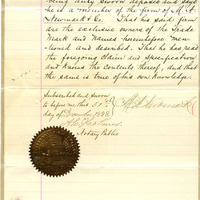 being duly sworn deposes and says
he is a member of the firm of M. A.
Newmark & Co. That his said firm
are the exclusive owners of the Trade
Mark and Names hereinbefore men-
tioned and described. That he has read
the foregoing Claim and Specification
and knows the contents thereof, and that
the same is true of his own knowledge.
Subscribed and sworn
to before me this
day of December 1898
Notary Public